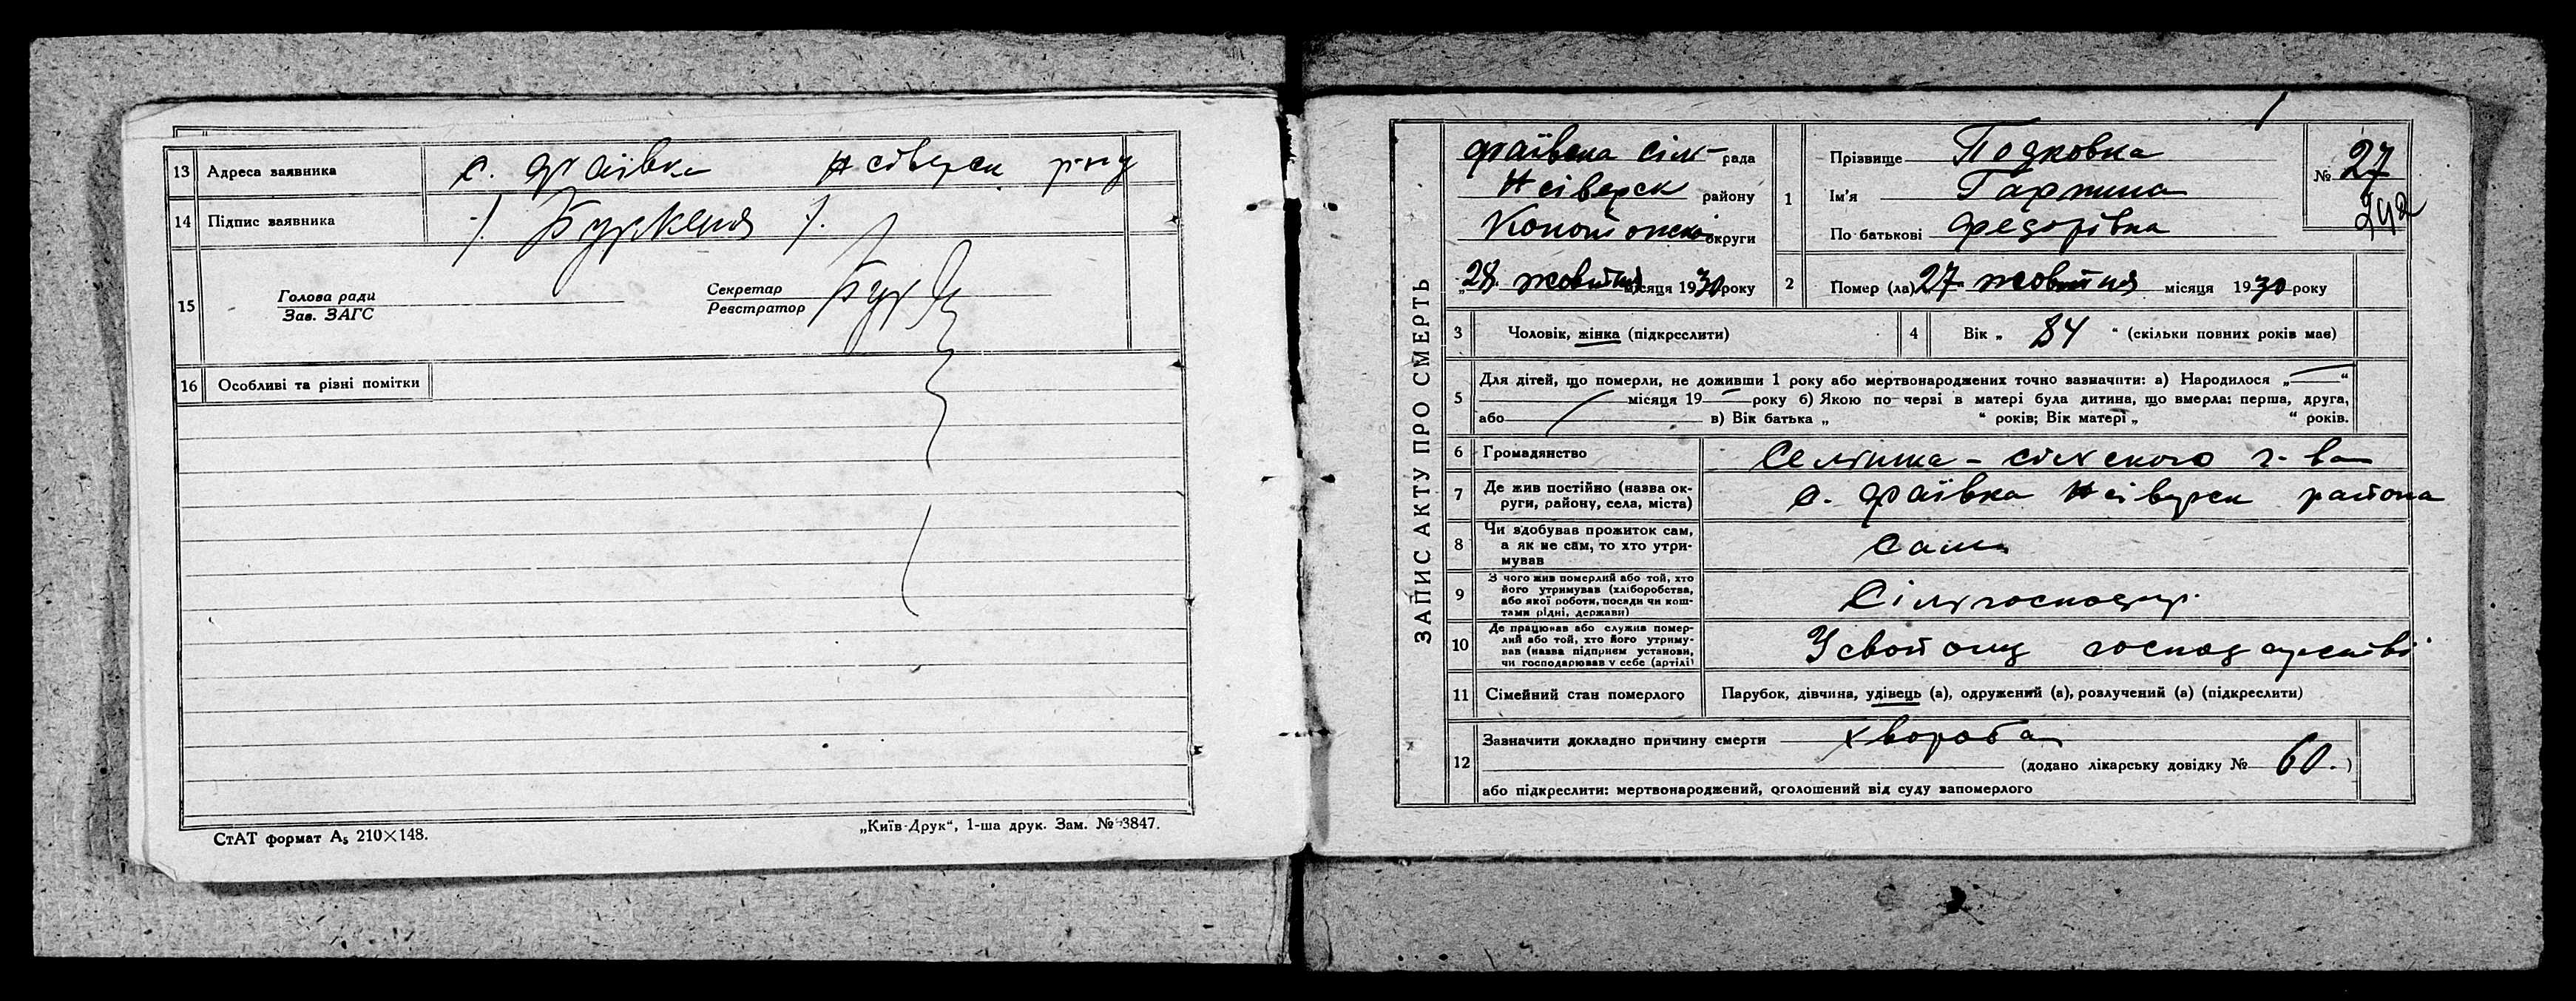 13 Адреса заявника с. Фаївка Н сіверск р-ну
14 Підпис заявника /. Буркеня /.
15 Голова ради
Зав. ЗАГС
Секретар
Реєстратор
16 Особливі та різні помітки
СтАТ формат А₅ 210×148.
„Київ-Друк“, 1-ша друк. Зам. № 3847.
ЗАПИС АКТУ ПРО СМЕРТЬ
Фаївска сіль- рада
Н сіверск району
Конотопско округи
„28. жовтня місяця 1930 року
1 Прізвище Подковка
Ім'я Гарпина
По батькові Федорівка
№ 27
292
2 Помер (ла) 27. жовтня місяця 1930 року
3 Чоловік, жінка (підкреслити)
4 Вік „ 84 “ (скільки повних років має)
5 Для дітей, що померли, не доживши 1 року або мертвонароджених точно зазначити: а) Народилося „ “
місяця 19 року б) Якою по черзі в матері була дитина, що вмерла: перша, друга,
або в) Вік батька „ “ років; Вік матері „ “ років.
6 Громадянство Селянка - сільского г-ва
7 Де жив постійно (назва округи, району, села, міста) с. Фаївка Н сіверск района
8 Чи здобував прожиток сам, а як не сам, то хто утримував Сама
9 З чого жив померлий або той, хто його утримував (хліборобства, або якої роботи, посади чи коштами рідні, держави) Сільгосподар.
10 Де працював або служив померлий або той, хто його утримував (назва підприєм установи, чи господарював у себе (артілі) У свойому господарстві
11 Сімейний стан померлого Парубок, дівчина, удівець (а), одружений (а), розлучений (а) (підкреслити)
12 Зазначити докладно причину смерти хвороба
(додано лікарську довідку № 60.)
або підкреслити: мертвонароджений, оголошений від суду запомерлого